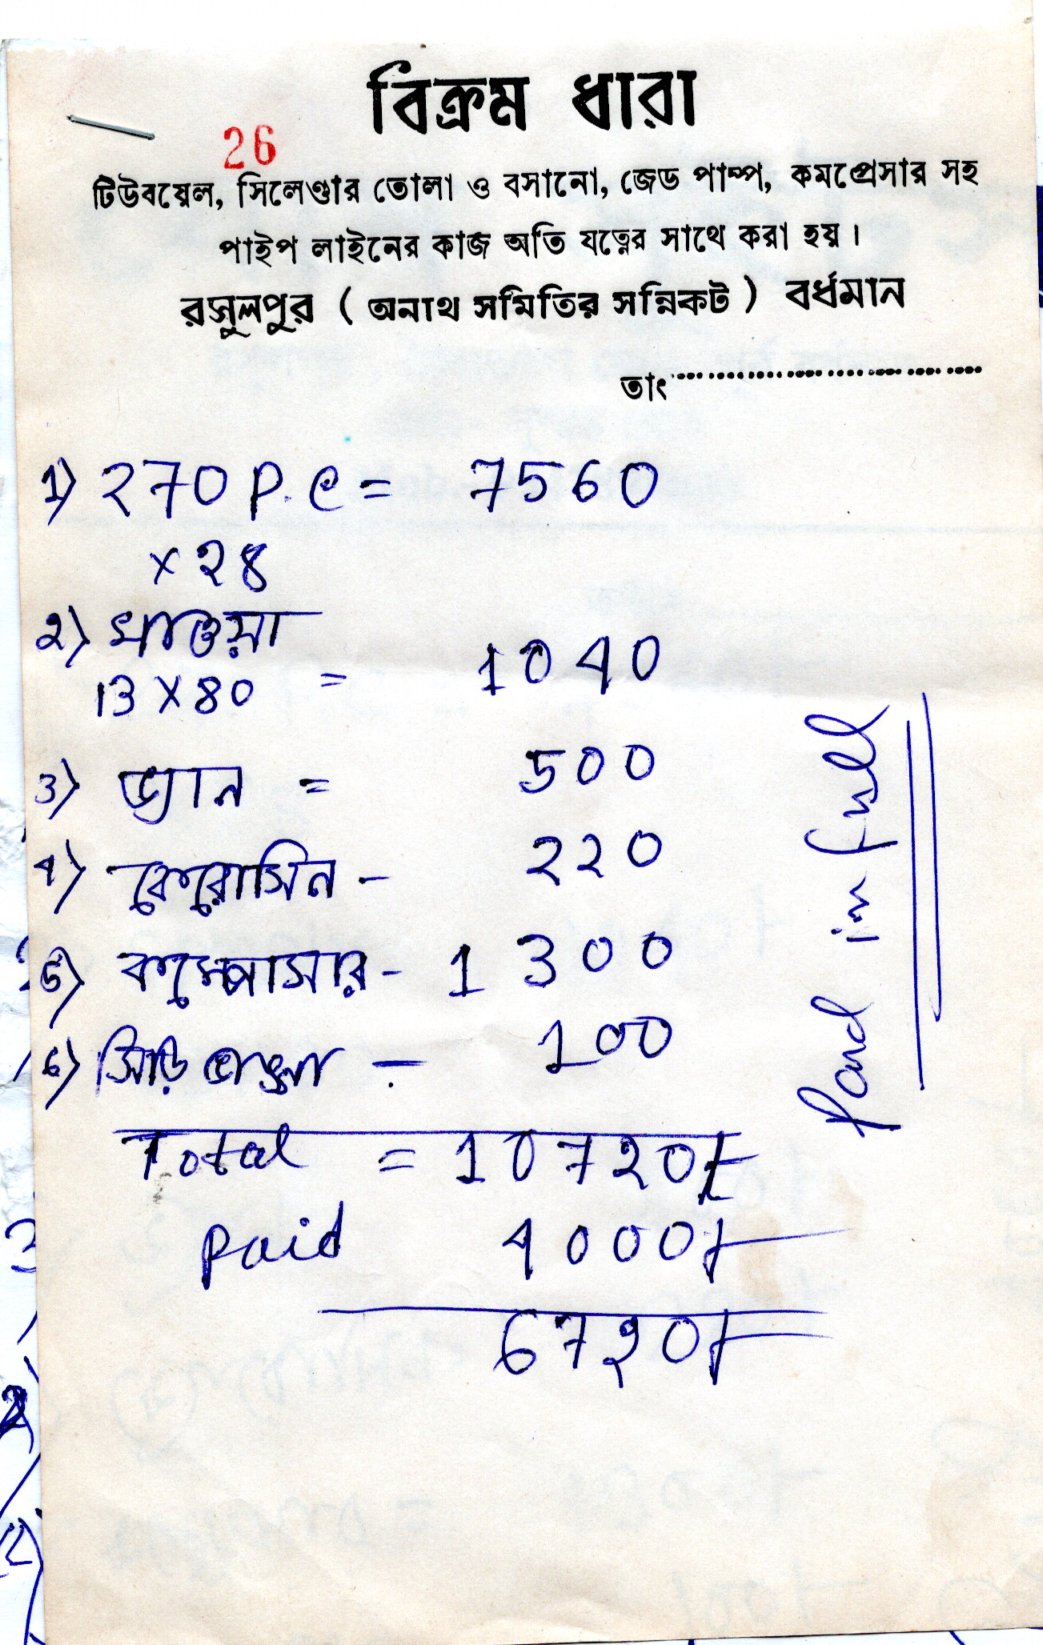 বিক্রম ধারা
26
টিউবয়েল, সিলেণ্ডার তোলা ও বসানো, জেড পাম্প, কমপ্রেসার সহ
পাইপ লাইনের কাজ অতি যত্নের সাথে করা হয়।
রসুলপুর ( অনাথ সমিতির সন্নিকট ) বর্ধমান
তাং....................................
1) 270 P.C = 7560
x 28
2) খাওয়া
13 x 80 = 1040
3) ভ্যান = 500
4) কেরোসিন - 220
5) কম্প্রেসার - 1300
6) সিঁড়ি ভাঙ্গা - 100
Total = 10720/-
Paid 4000/-
6720/-
Paid in full